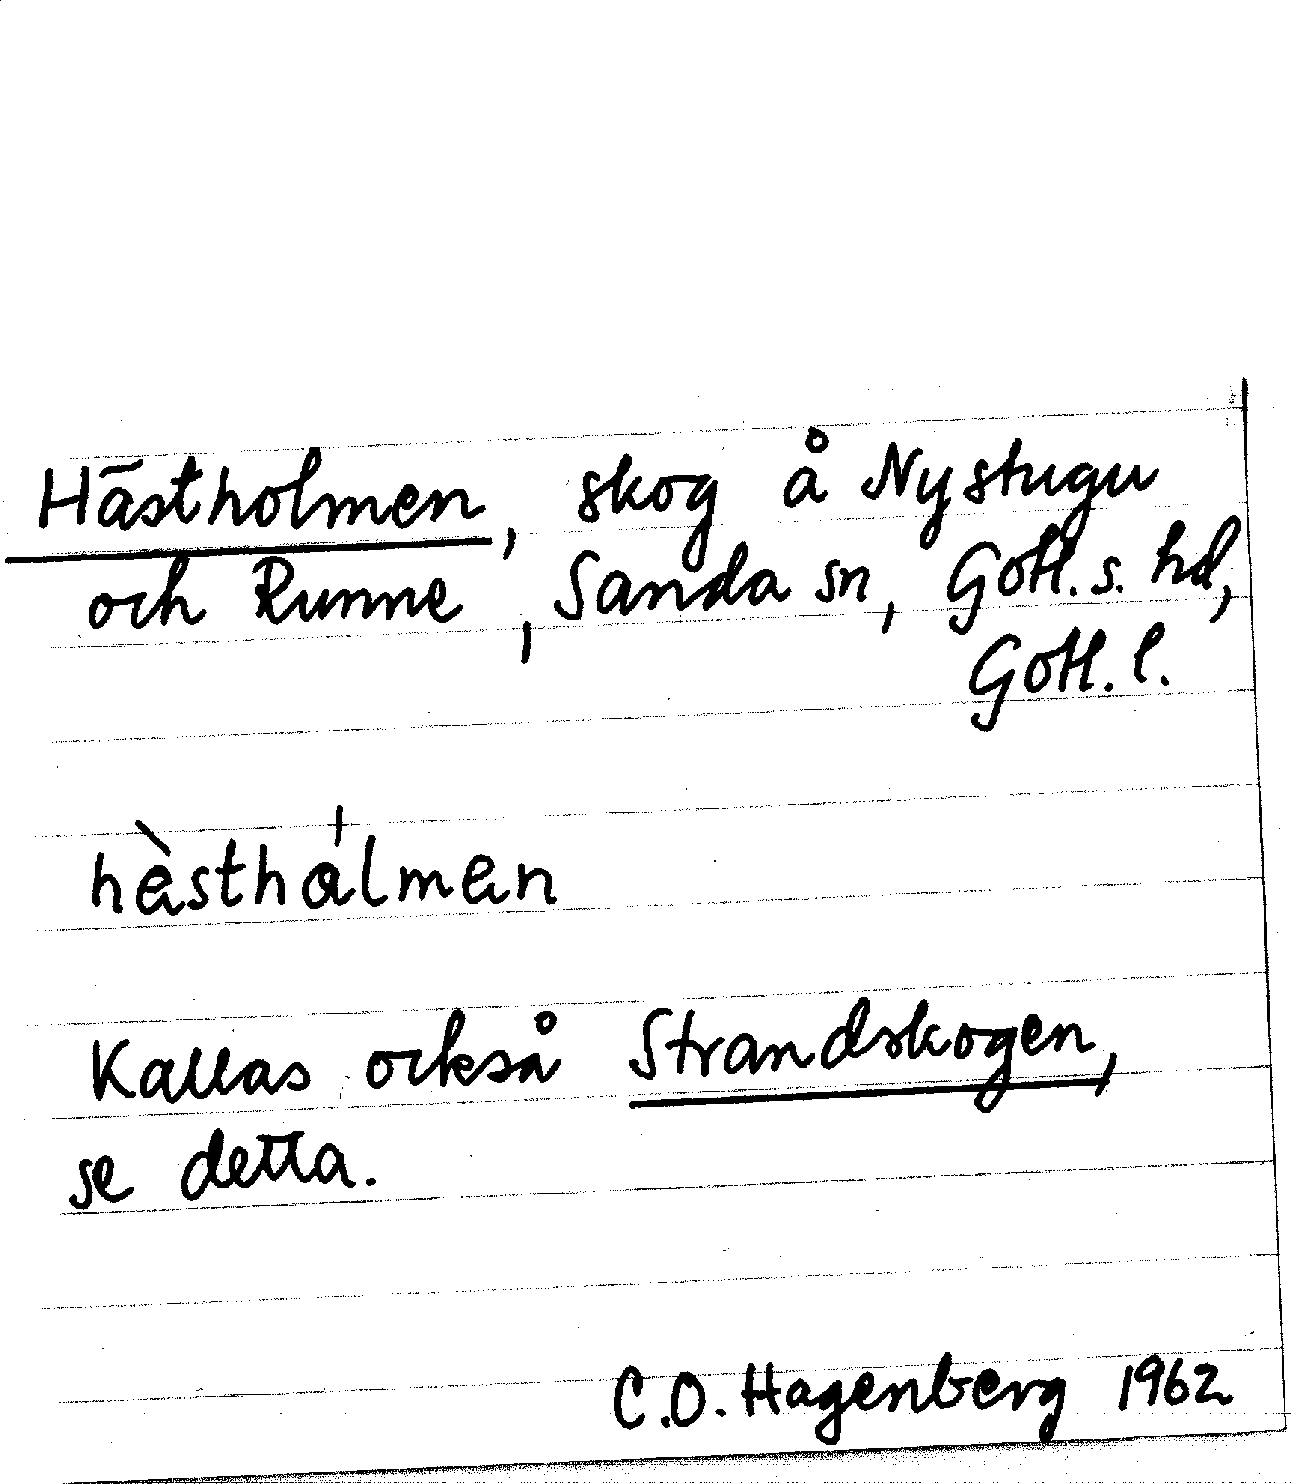 Hästholmen, skog å Nystugu
och Runne, Sanda sn, Gotl. s. hd,
Gotl. l.
hèsthálmen
Kallas också Strandskogen,
se detta.
C.O. Hagenberg 1962